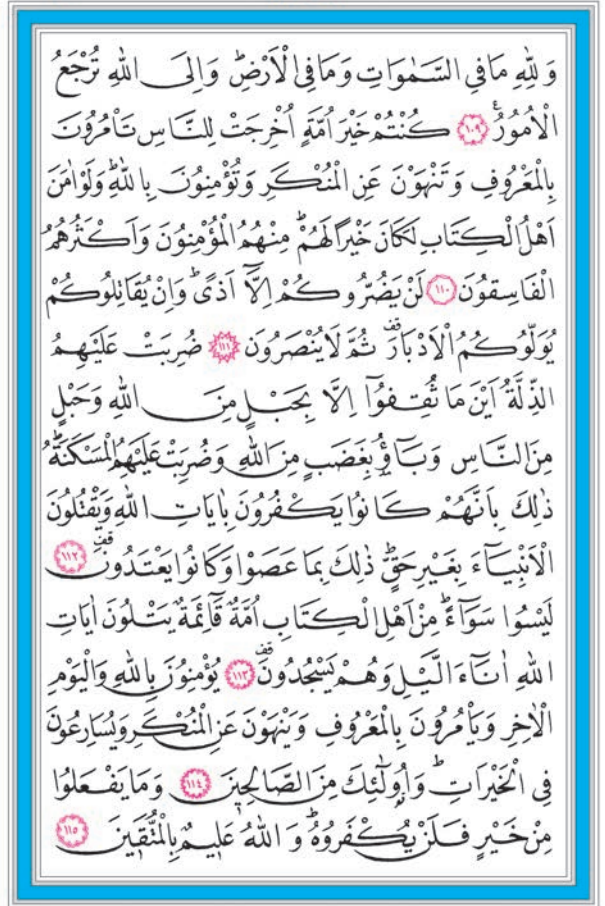 وَلِلّٰهِ مَا فِي السَّمٰوَاتِ وَمَا فِي الْاَرْضِۜ وَاِلَى اللّٰهِ تُرْجَعُ
الْاُمُورُ۟ ﴿١٠٩﴾ كُنْتُمْ خَيْرَ اُمَّةٍ اُخْرِجَتْ لِلنَّاسِ تَأْمُرُونَ
بِالْمَعْرُوفِ وَتَنْهَوْنَ عَنِ الْمُنْكَرِ وَتُؤْمِنُونَ بِاللّٰهِۜ وَلَوْ اٰمَنَ
اَهْلُ الْكِتَابِ لَكَانَ خَيْرًا لَهُمْۜ مِنْهُمُ الْمُؤْمِنُونَ وَاَكْثَرُهُمُ
الْفَاسِقُونَ ﴿١١٠﴾ لَنْ يَضُرُّوكُمْ اِلَّٓا اَذًىۜ وَاِنْ يُقَاتِلُوكُمْ
يُوَلُّوكُمُ الْاَدْبَارَ۠ ثُمَّ لَا يُنْصَرُونَ ﴿١١١﴾ ضُرِبَتْ عَلَيْهِمُ
الذِّلَّةُ اَيْنَ مَا ثُقِفُٓوا اِلَّا بِحَبْلٍ مِنَ اللّٰهِ وَحَبْلٍ
مِنَ النَّاسِ وَبَٓاؤُ۫ بِغَضَبٍ مِنَ اللّٰهِ وَضُرِبَتْ عَلَيْهِمُ الْمَسْكَنَةُۜ
ذٰلِكَ بِاَنَّهُمْ كَانُوا يَكْفُرُونَ بِاٰيَاتِ اللّٰهِ وَيَقْتُلُونَ
الْاَنْبِيَٓاءَ بِغَيْرِ حَقٍّۜ ذٰلِكَ بِمَا عَصَوْا وَكَانُوا يَعْتَدُونَ۠ ﴿١١٢﴾
لَيْسُوا سَوَٓاءًۜ مِنْ اَهْلِ الْكِتَابِ اُمَّةٌ قَٓائِمَةٌ يَتْلُونَ اٰيَاتِ
اللّٰهِ اٰنَٓاءَ الَّيْلِ وَهُمْ يَسْجُدُونَ۠ ﴿١١٣﴾ يُؤْمِنُونَ بِاللّٰهِ وَالْيَوْمِ
الْاٰخِرِ وَيَأْمُرُونَ بِالْمَعْرُوفِ وَيَنْهَوْنَ عَنِ الْمُنْكَرِ وَيُسَارِعُونَ
فِي الْخَيْرَاتِۜ وَاُو۬لٰٓئِكَ مِنَ الصَّالِح۪ينَ ﴿١١٤﴾ وَمَا يَفْعَلُوا
مِنْ خَيْرٍ فَلَنْ يُكْفَرُوهُۜ وَاللّٰهُ عَل۪يمٌ بِالْمُتَّق۪ينَ ﴿١١٥﴾